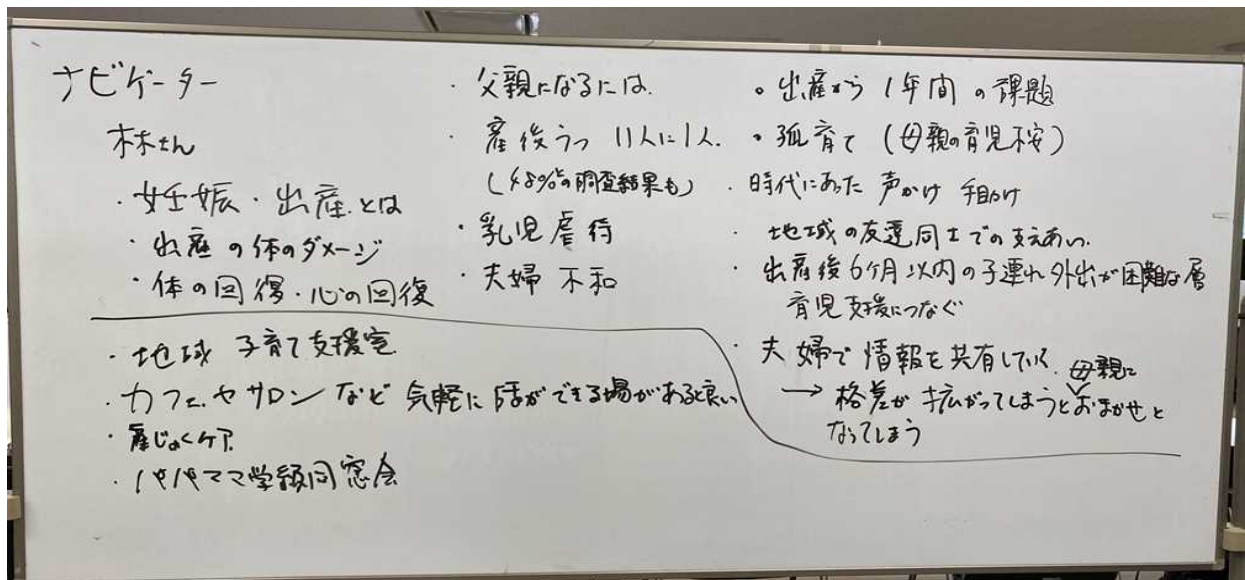 ナビゲーター
林さん
・妊娠・出産とは
・出産の体のダメージ
・体の回復・心の回復
・父親になるには
・産後うつ 11人に1人.
(48%の調査結果も)
・乳児虐待
・夫婦不和
・出産から1年間の課題
・孤育て(母親の育児不安)
・時代にあった 声かけ 手助け
・地域の友達同士での支えあい.
・出産後6ヶ月以内の子連れ外出が困難な層
育児支援につなぐ
・夫婦で情報を共有していく.
→ 格差が拡がってしまうと母親におまかせと
なってしまう
・地域 子育て支援室
・カフェやサロンなど 気軽に話ができる場があると良い
・産じょくケア
・パパママ学級同窓会